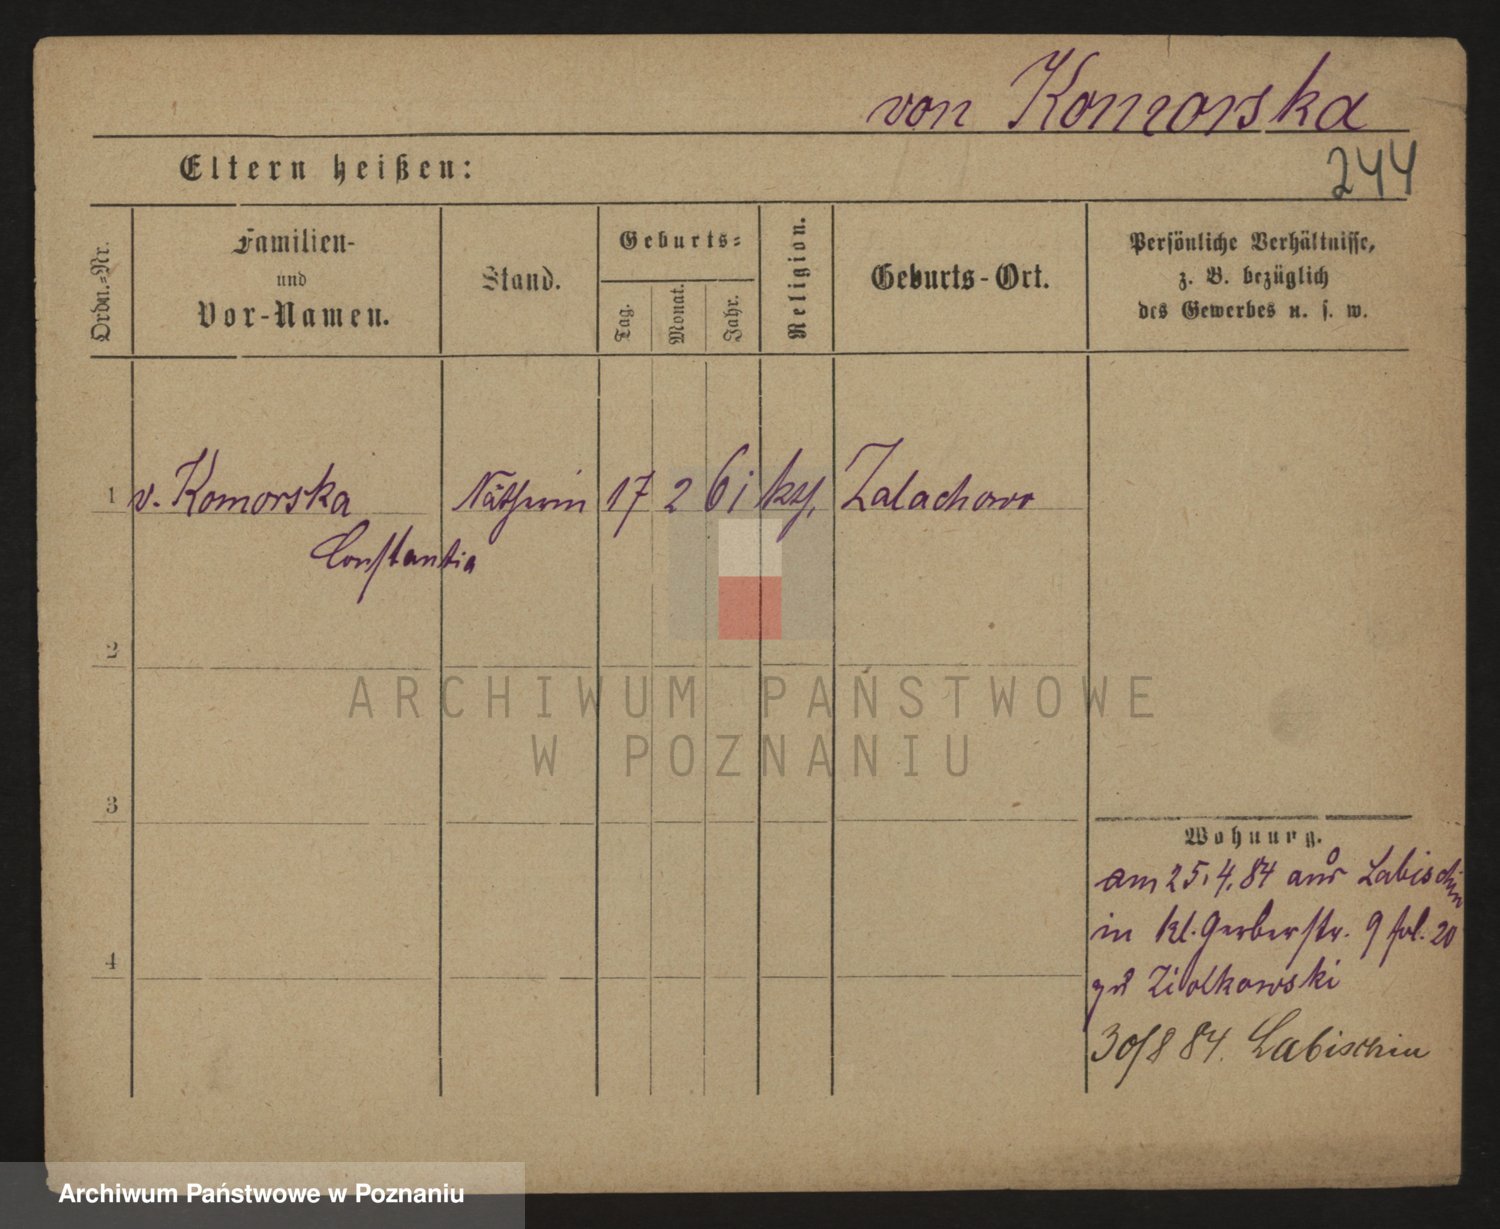 von Komorska
Eltern heißen:
244
Ordn.-Nr.
Familien-
und
Vor-Namen.
Stand.
Geburts-
Tag.
Monat.
Jahr.
Religion.
Geburts-Ort.
Persönliche Verhältnisse,
z. B. bezüglich
des Gewerbes u. s. w.
1 v. Komorska Nätherin 17 2 61 kth. Zalachowo
Constantia
2
3
4
ARCHIWUM PAŃSTWOWE
W POZNANIU
Wohnung.
am 25.4.84 aus Labischin
in kl. Gerberstr. 9 fol. 20
zu Ziolkowski
30/8 84. Labischin
Archiwum Państwowe w Poznaniu